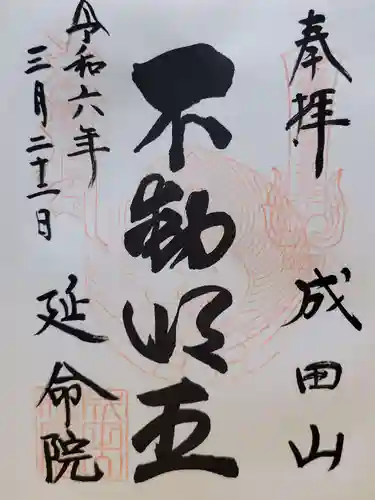 奉拝
成田山
不動明王
令和六年
三月二十一日
延命院